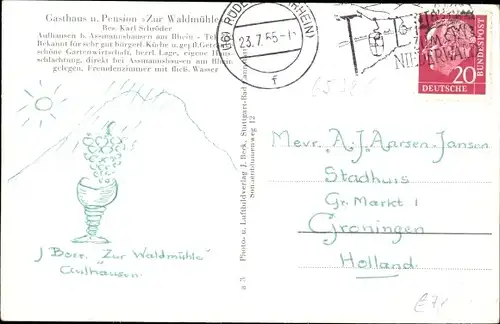 Gasthaus u. Pension »Zur Waldmühle
Bes. Karl Schröder
Aulhausen b. Assmannshausen am Rhein - Tel
Bekannt für sehr gut bürgerl. Küche u. gepfl. Geträ
schöne Gartenwirtschaft, herrl. Lage, eigene Haus-
schlachtung, direkt bei Assmannshausen am Rhein
gelegen. Fremdenzimmer mit fließ. Wasser
J Borr. "Zur Waldmühle"
Aulhausen.
a 3 Photo- u. Luftbildverlag J. Beck, Stuttgart-Bad Cannstatt
Sonnenblumenweg 12
(16) RÜDE RHEIN)
23.7.55-1
f
NIEDERWALD
20
DEUTSCHE
BUNDESPOST
Mevr. "A. J. Aarsen-Jansen
Stadhuis
Gr. Markt 1
Groningen
Holland.